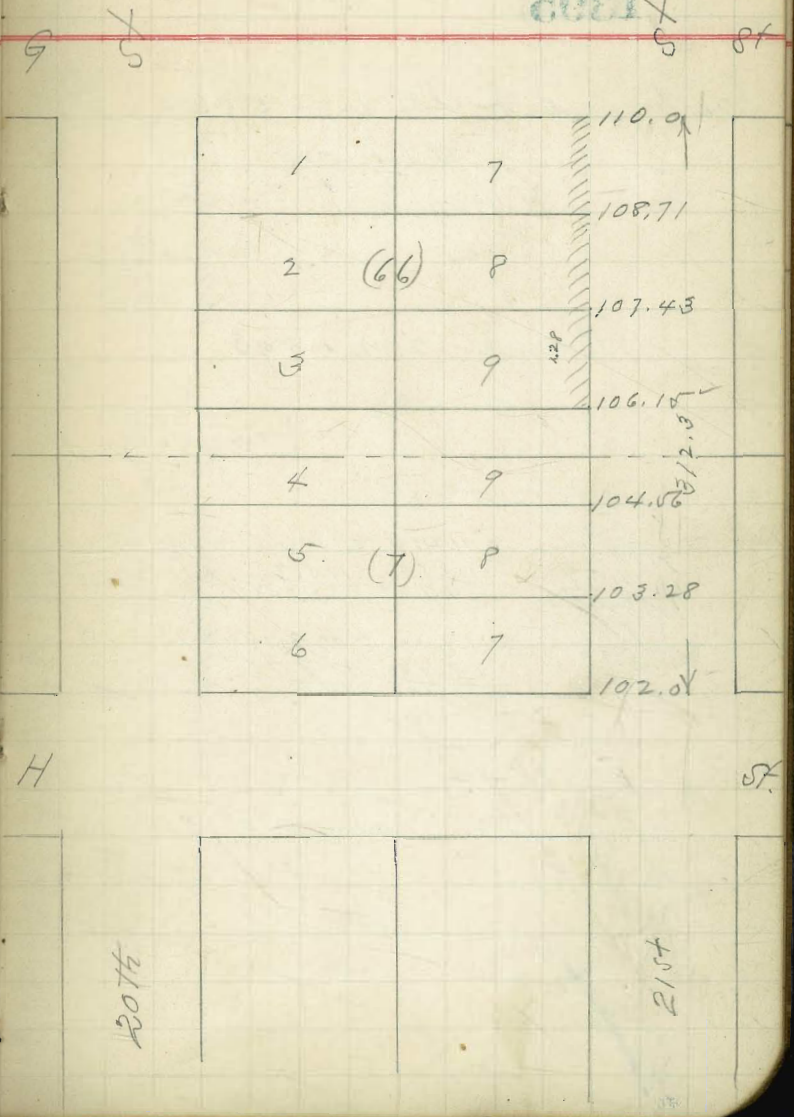 G St St St
110.0
1 7
108.71
2 (66) 8
107.43
3 1.28 9
106.15 ✓
312.3
4 9
104.56
5 (7) 8
103.28
6 7
102.0
H St.
20th 21st